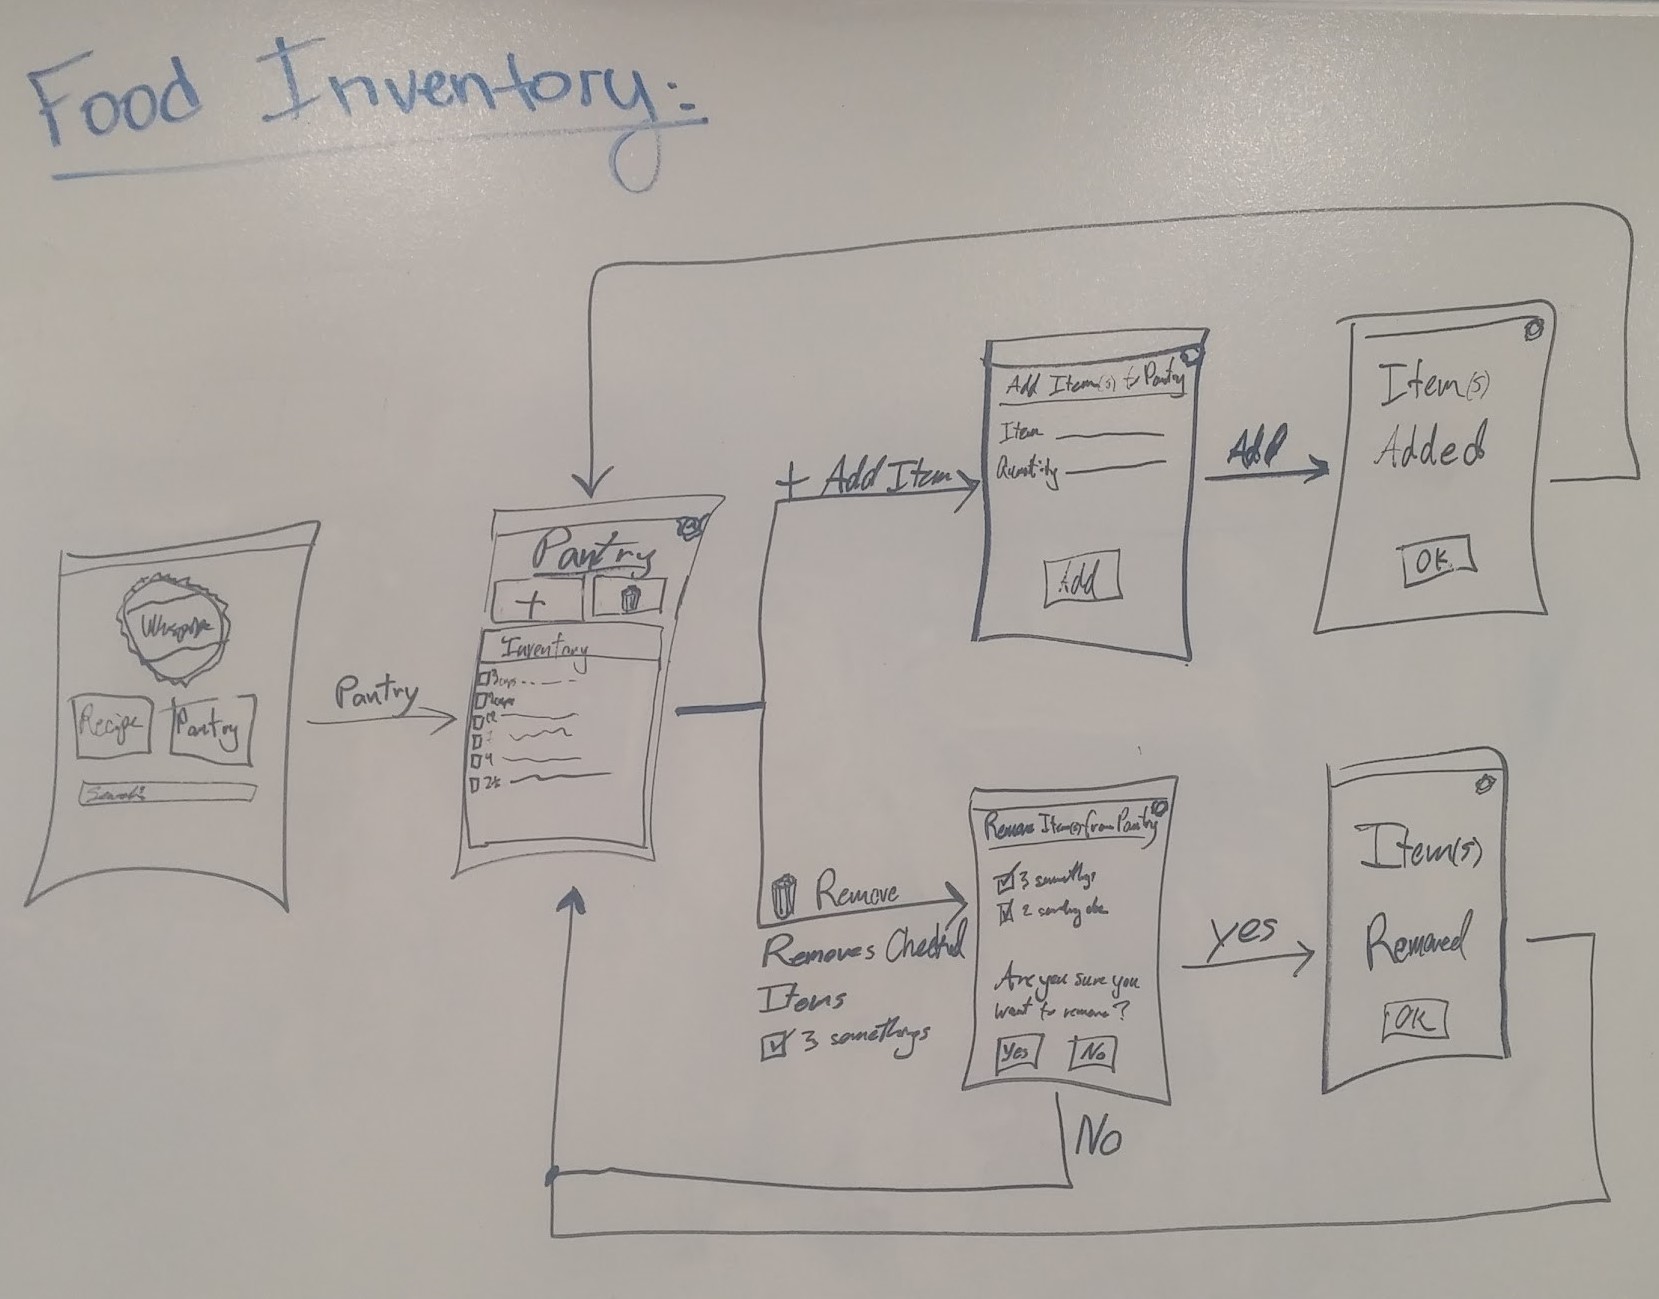 Food Inventory:
Recipe
Pantry
Search
Pantry
Pantry
+
Inventory
3 cups
7
4
+ Add Item
Add Item(s) to Pantry
Item
Quantity
Add
Add
Item(s)
Added
OK
Remove
Removes Checked
Items
3 somethings
Remove Item(s) from Pantry
3 somethings
2 something else
Are you sure you
want to remove?
Yes
No
Yes
No
Item(s)
Removed
OK